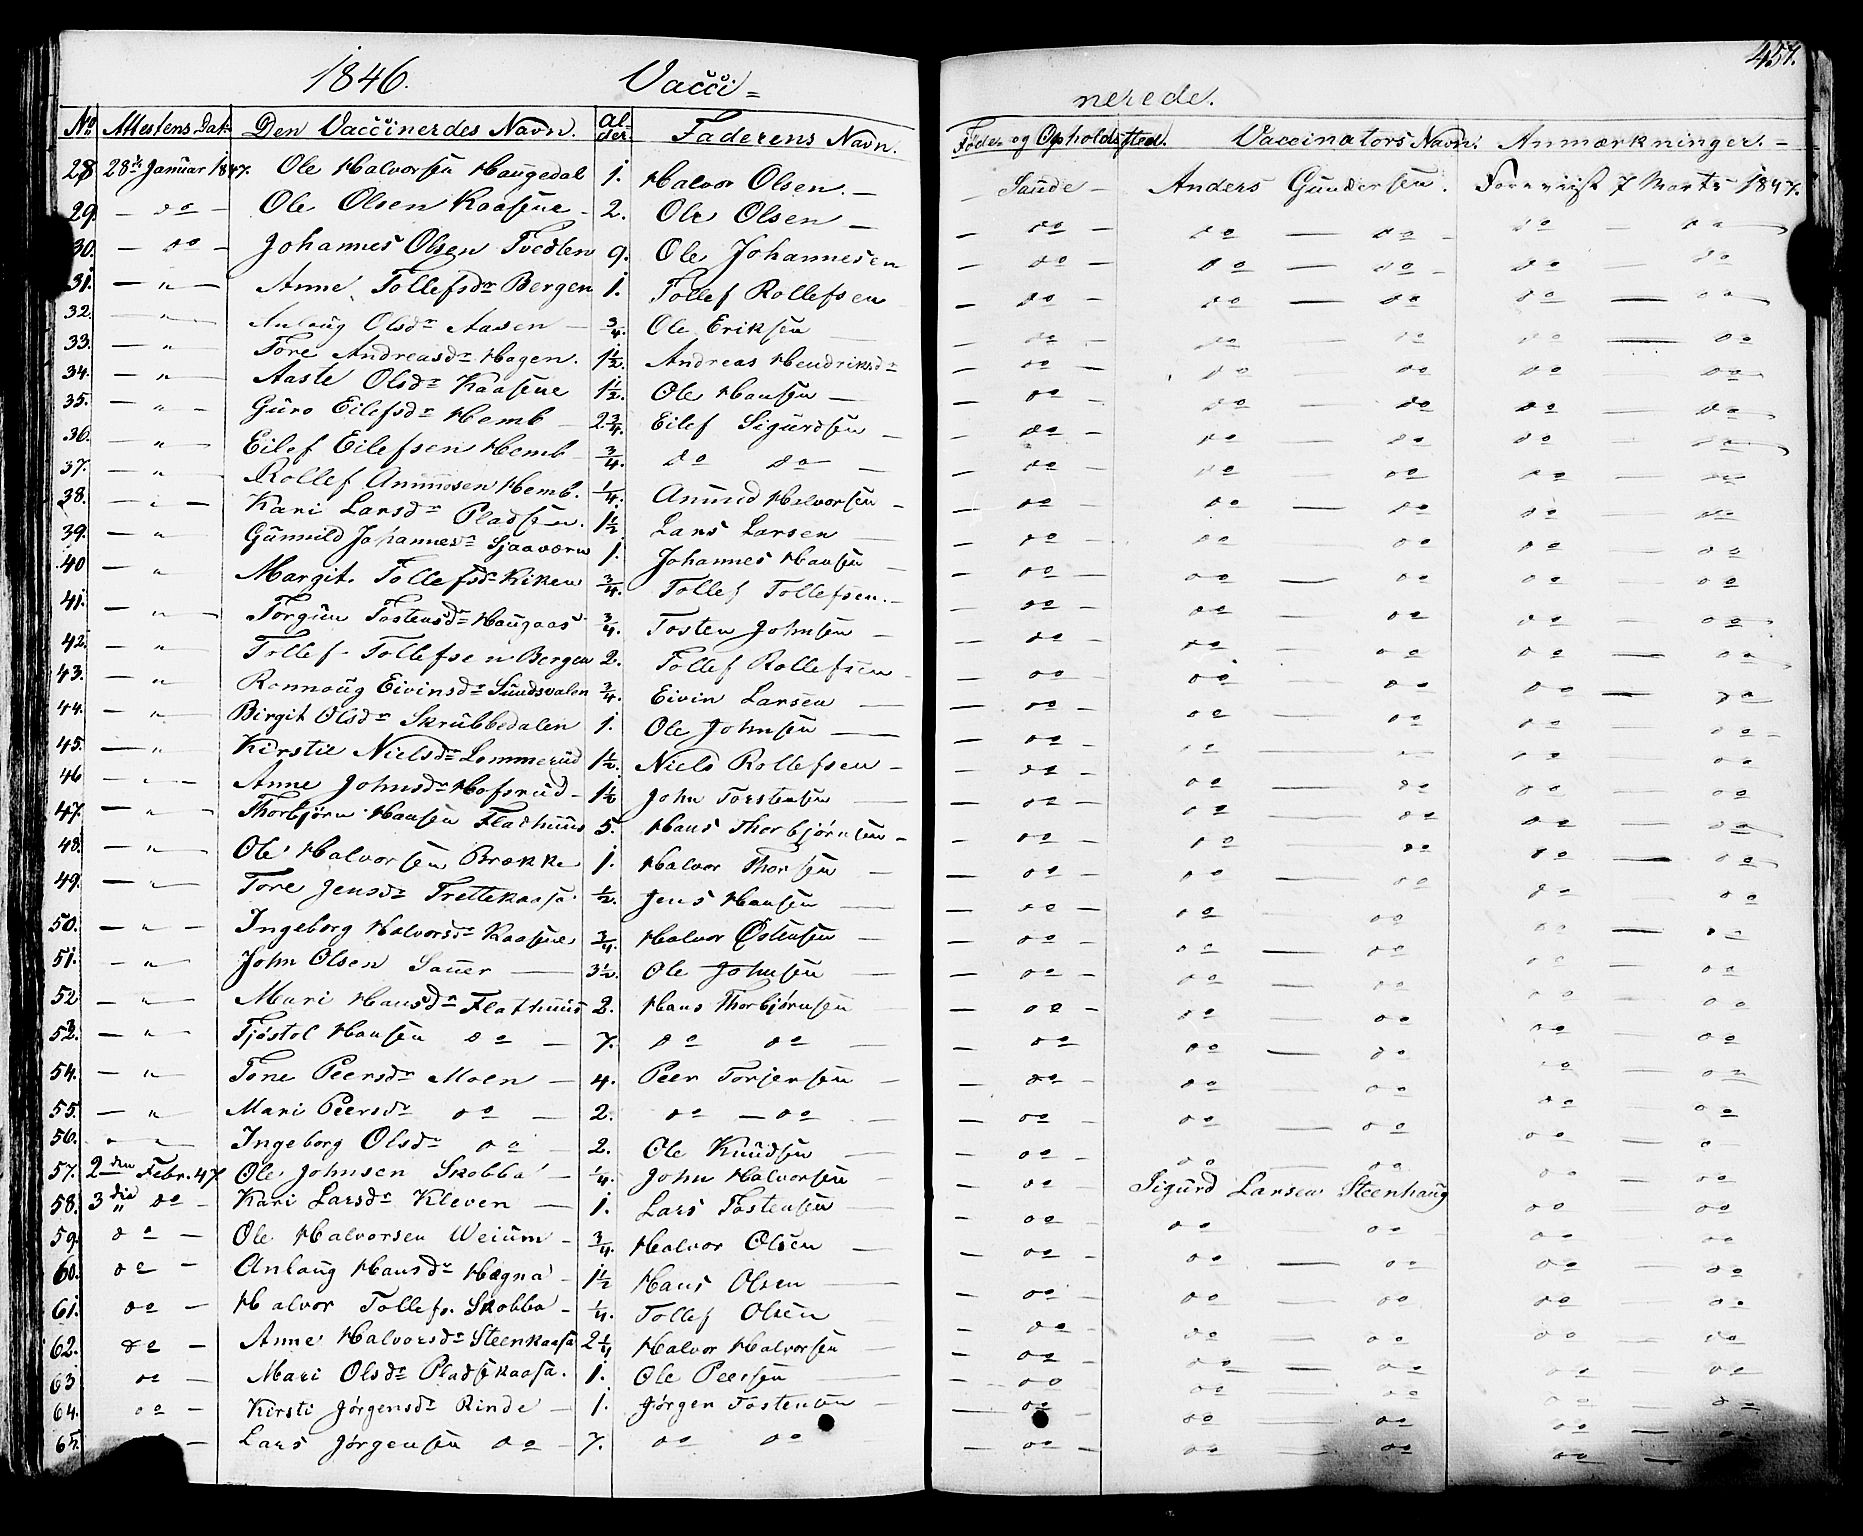 457.
1846. Vacci= nerede.
No Attestens Dat: Den Vaccinerdes Navn. Al-der. Faderens Navn. Føde- og Opholdssted. Vaccinators Navn. Anmærkninger. -
28 28de Januar 1847. Ole Halvorsen Haugedal 1. Halvor Olsen. - Saude - Anders Gundersen. Foreviist 7 Marts 1847.
29. - do - Ole Olsen Kaasene - 2. Ole Olsen - - do - do - do - do - do
30. - do - Johannes Olsen Tvedten 9. Ole Johannesen - do - do - do - do - do
31. - " - Anne Tollefsdr Bergen 1. Tollef Rollefsen - do - do - do - do - do
32. - " - Anlaug Olsdr Aasen - 3/4. Ole Eriksen - do - do - do - do - do
33. - " - Tore Andreasdr Hagen. 1 1/2. Andreas Hendriksdr - do - do - do - do - do
34. - " - Aaste Olsdr Kaasene 1 1/2. Ole Hansen - - do - do - do - do - do
35. - " - Guro Eilefsdr Hemb - 2 3/4. Eilef Sigurdsen - - do - do - do - do - do
36. - " - Eilef Eilefsen Hemb 3/4. do do - - do - do - do - do - do
37. - " - Rollef Amunsen Hemb. 1/4. Amund Halvorsen - - do - do - do - do - do
38. - " - Kari Larsdr Pladsen. 1 1/2 Lars Larsen - - do - do - do - do - do
39. - " - Gunnild Johannesdr Sjaavorn 1. Johannes Hansen - - do - do - do - do - do
40 - " - Margit Tollefsdr Kiken 3/4. Tollef Tollefsen. - - do - do - do - do - do
41. - " - Torgun Tostensdr Haugaas 3/4. Tosten Johnsen - - do - do - do - do - do
42. - " - Tollef Tollefsen Bergen 2. Tollef Rollefsen - - do - do - do - do - do
43. - " - Ronnoug Eivinsdr Sundsvalen 3/4. Eivin Larsen - - do - do - do - do - do
44. - " - Birgit Olsdr Skrubbedalen 1. Ole Johnsen - - do - do - do - do - do
45. - " - Kirstie Nielsdr Lommerud 1 1/2. Niels Rollefsen - - do - do - do - do - do
46 - " - Anne Johnsdr Hofsrud - 1 1/2 John Torstensen - - do - do - do - do - do
47. - " - Thorbjørn Hansen Flathuus 5. Hans Thorbjørnsen - - do - do - do - do - do
48. - " - Ole Halvorsen Brække 1. Halvor Thorsen - - do - do - do - do - do
49. - " - Tore Jensdr Trettekaasa 1/2. Jens Hansen - - do - do - do - do - do
50. - " - Ingeborg Halvorsdr Kaasene 3/4. Halvor Østensen - - do - do - do - do - do
51. - " - John Olsen Sauer - 3 1/2. Ole Johnsen - - do - do - do - do - do
52 - " - Mari Hansdr Flathuus 2. Hans Thorbjørnsen - - do - do - do - do - do
53. - " - Tjøstol Hansen do - 7. do do - - do - do - do - do - do
54. - " - Tone Peersdr Moen - 4. Peer Torjersen - - do - do - do - do - do
55. - " - Mari Peersdr do - 2. do - do - - do - do - do - do - do
56. - " - Ingeborg Olsdr do - 2. Ole Knudsen - - do - do - do - do - do
57. 2den Febr. 47. Ole Johnsen Skobba 1/4. John Halvorsen - - do - Sigurd Larsen Steenhaug do - do
58. 3die do - Kari Larsdr Kleven - 1. Lars Tostensen - - do - do - do - do - do
59. do - Ole Halvorsen Weium - 3/4. Halvor Olsen - - do - do - do - do - do
60. do - Anlaug Hansdr Hægna - 1 1/2 Hans Olsen - - do - do - do - do - do
61. do - Halvor Tollefs. Skobba - 1/4. Tollef Olsen - - do - do - do - do - do
62. do - Anne Halvorsdr Steenkaasa 2 1/4 Halvor Halvorsen - - do - do - do - do - do
63 do - Mari Olsdr Pladsekaasa. 1. Ole Peersen - - do - do - do - do - do
64. do - Kirsti Jørgensdr Rinde - 1. Jørgen Tostensen - - do - do - do - do - do
65. - Lars Jørgensen do - 7. do do - do - do - do - do - do